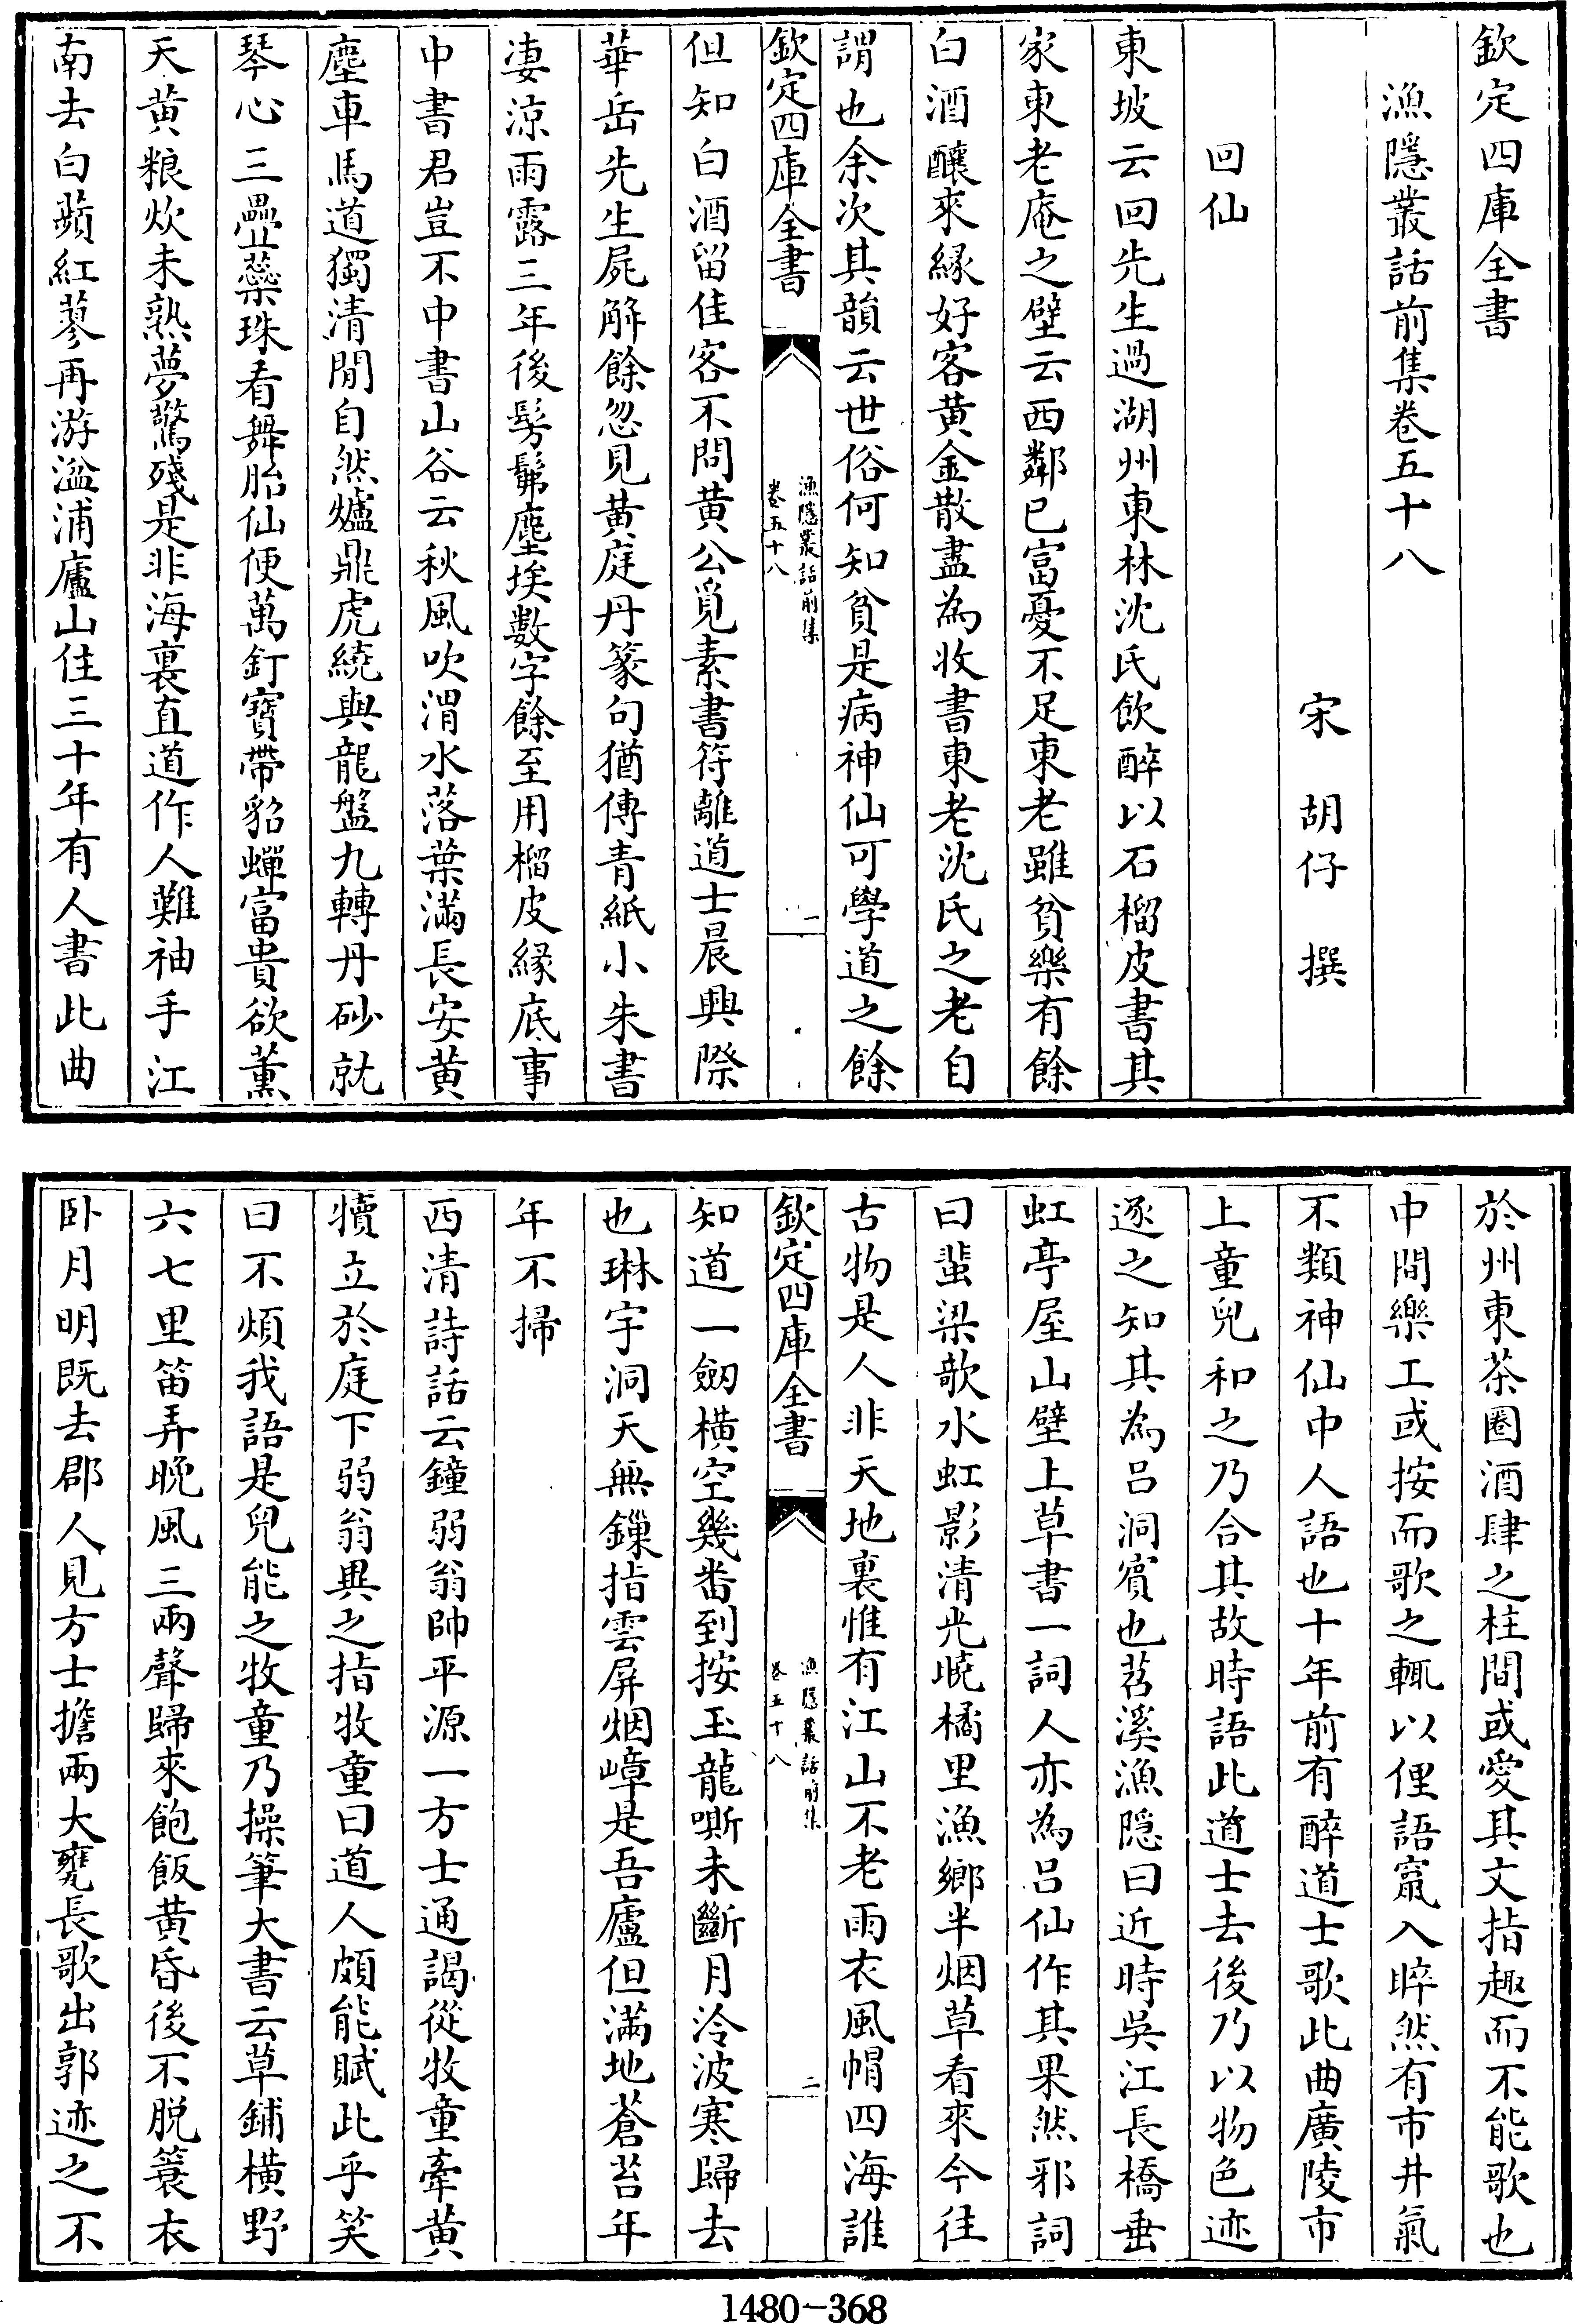 欽定四庫全書
漁隱叢話前集卷五十八
宋胡仔撰
回仙
東坡云回先生過湖州東林沈氏飲醉以石榴皮書其
家東老庵之壁云西鄰已富憂不足東老雖貧樂有餘
白酒釀來縁好客黄金散盡為收書東老沈氏之老自
謂也余次其韻云世俗何知貧是病神仙可學道之餘
欽定四庫全書
漁隱叢話前集
卷五十八
一
但知白酒留佳客不問黄公覓素書符離道士晨興際
華岳先生屍解餘忽見黄庭丹篆句猶傳青紙小朱書
凄涼雨露三年後髣髴塵埃數字餘至用榴皮縁底事
中書君豈不中書山谷云秋風吹渭水落葉滿長安黄
塵車馬道獨清閒自然爐鼎虎繞與龍盤九轉丹砂就
琴心三疊蘂珠看舞胎仙便萬釘寶帶貂蟬富貴欲薰
天黄粮炊未熟夢驚殘是非海裏直道作人難袖手江
南去白蘋紅蓼再游湓浦廬山住三十年有人書此曲
於州東茶圈酒肆之柱間或愛其文指趣而不能歌也
中間樂工或按而歌之輒以俚語竄入睟然有市井氣
不類神仙中人語也十年前有醉道士歌此曲廣陵市
上童兒和之乃合其故時語此道士去後乃以物色迹
逐之知其為呂洞賓也苕溪漁隱曰近時吳江長橋垂
虹亭屋山壁上草書一詞人亦為呂仙作其果然邪詞
曰蜚梁歌水虹影清光曉橘里漁鄉半烟草看來今往
古物是人非天地裏惟有江山不老雨衣風帽四海誰
欽定四庫全書
漁隱叢話前集
卷五十八
二
知道一劒橫空幾番到按玉龍嘶未斷月冷波寒歸去
也琳宇洞天無鏁指雲屏烟嶂是吾廬但滿地蒼苔年
年不掃
西清詩話云鐘弱翁帥平源一方士通謁從牧童牽黄
犢立於庭下弱翁異之指牧童曰道人頗能賦此乎笑
曰不煩我語是兒能之牧童乃操筆大書云草鋪橫野
六七里笛弄晚風三兩聲歸來飽飯黄昏後不脫簑衣
卧月明既去郡人見方士擔兩大甕長歌出郭迹之不
1480-368